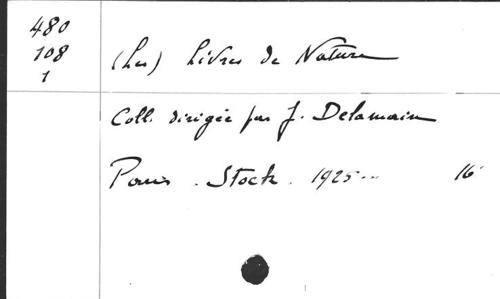 480
108
1
(Les) Livres de Nature
Coll. dirigée par J. Delamain
Paris . Stock . 1925...
16